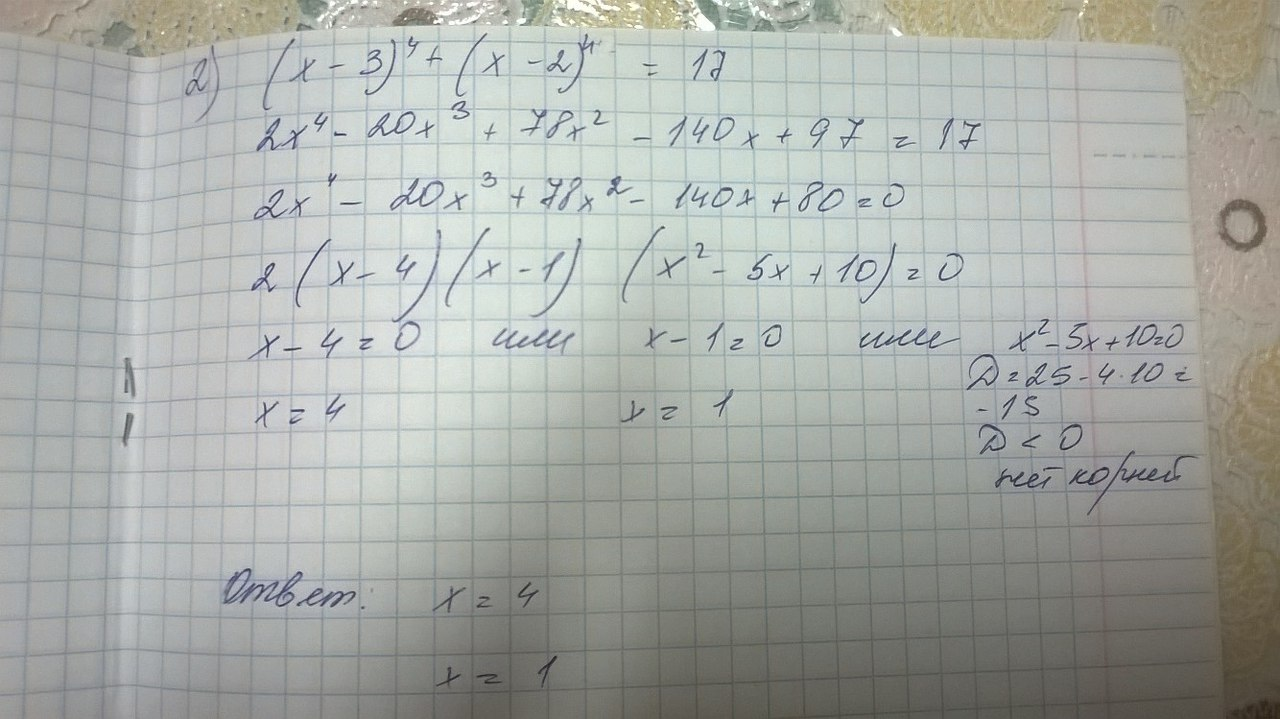 2) (x - 3)⁴ + (x - 2)⁴ = 17
2x⁴ - 20x³ + 78x² - 140x + 97 = 17
2x⁴ - 20x³ + 78x² - 140x + 80 = 0
2 (x - 4) (x - 1) (x² - 5x + 10) = 0
x - 4 = 0 или x - 1 = 0 или x² - 5x + 10 = 0
D = 25 - 4 · 10 =
x = 4 x = 1 - 15
D < 0
нет корней
Ответ: x = 4
x = 1